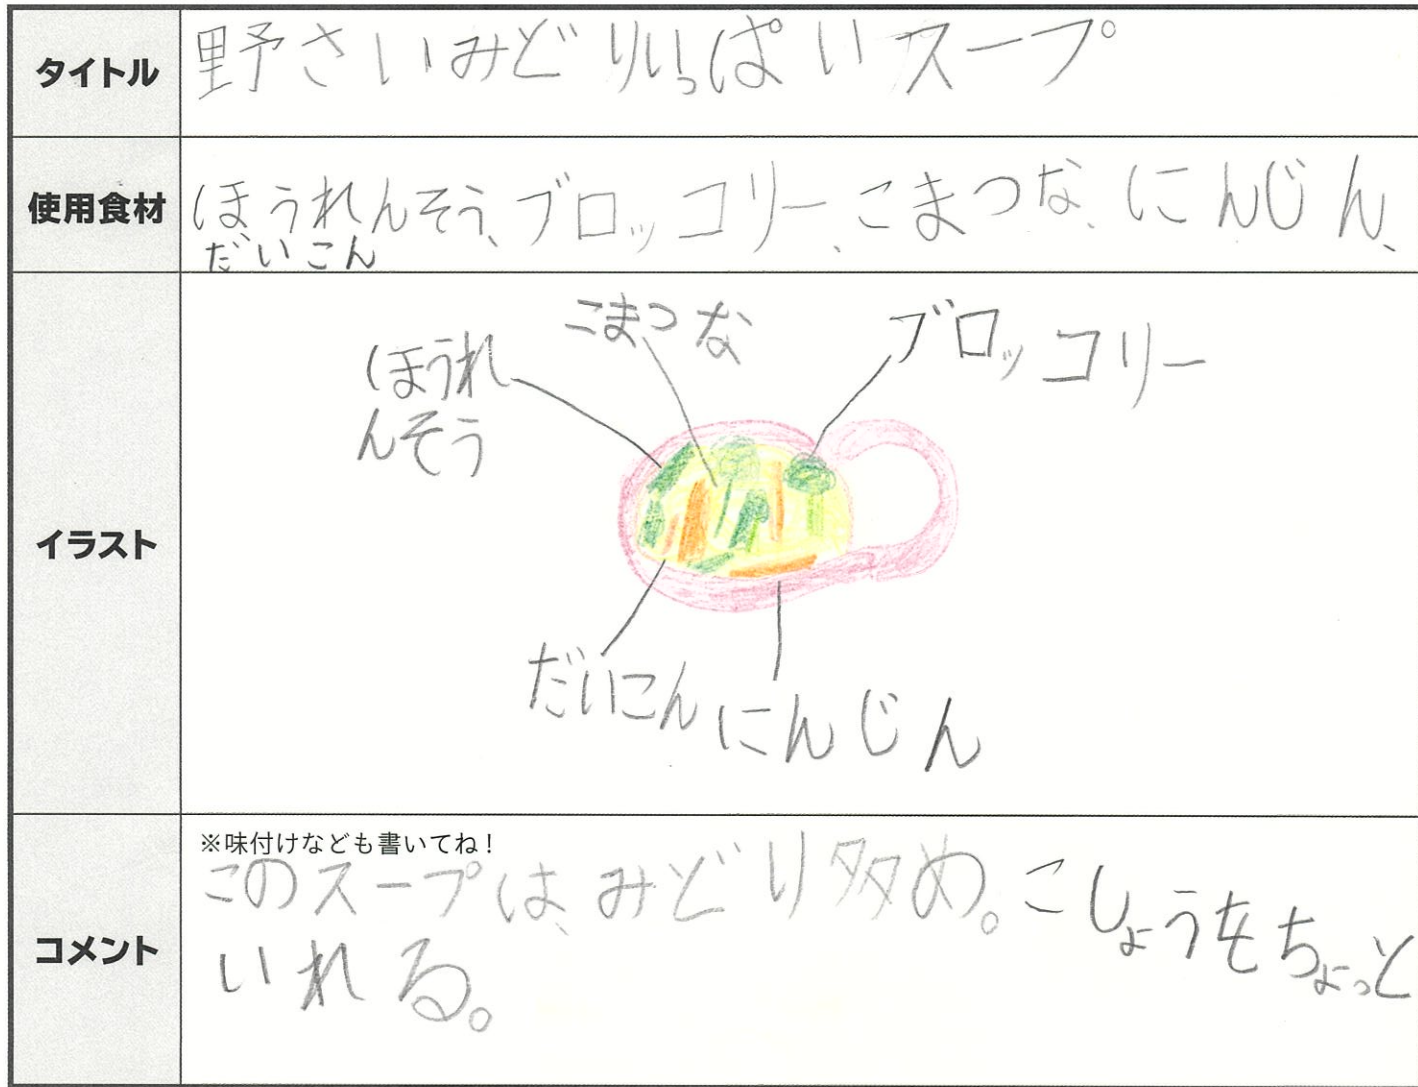 タイトル
野さいみどりいっぱいスープ
使用食材
ほうれんそう、ブロッコリー、こまつな、にんじん、
だいこん
イラスト
こまつな
ブロッコリー
ほうれ
んそう
だいこん
にんじん
コメント
※味付けなども書いてね!
このスープは、みどり多め。こしょうをちょっと
いれる。